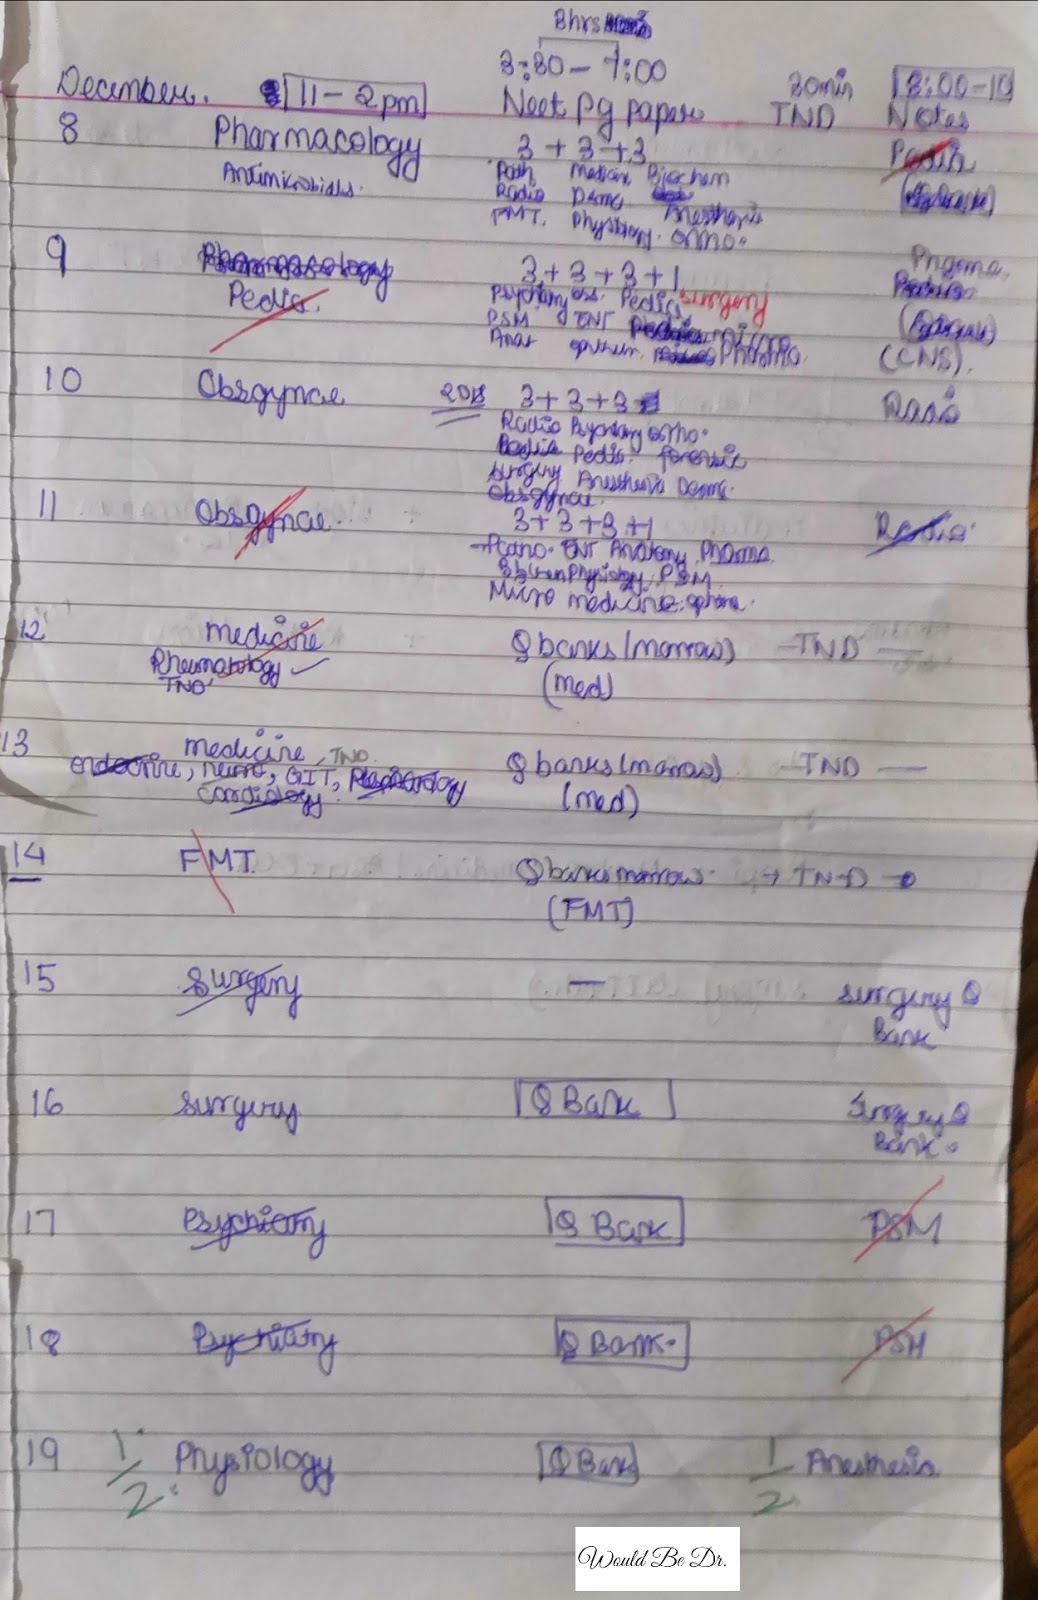 3hrs
3:30 - 7:00
December. 11 - 2pm Neet pg papers 30min TND 8:00-10 Notes
8 Pharmacology 3 + 3 + 3 Pedia
Antimicrobials. Path Medicine Biochem
Radio Derma Anesthesia
FMT. Physiology. ortho.
9 3 + 3 + 3 + 1 Pharma
Pedia. Psychiatry Pedia surgery
PSM ENT
Anat Pharma. (CNS).
10 Obsgynae 2018 3 + 3 + 3 Radio
Radio Psychiatry ortho.
Pedia. forensic
surgery Anesthesia Derma.
obsgynae.
11 Obsgynae. 3 + 3 + 3 + 1 Radio
ENT Anatomy, Pharma.
Physiology, PSM.
Micro medicine.
12 medicine Q banks (marrow) TND —
Rheumatology (med)
TND
13 medicine, TND Q banks (marrow) TND —
endocrine, neuro, GIT, (med)
cardiology
14 FMT. Q banks marrow. → TND
(FMT)
15 Surgery — surgery Q
Bank
16 Surgery Q Bank Surgery Q
Bank.
17 Psychiatry Q Bank PSM
18 Psychiatry Q Bank. PSM
19 1/2 Physiology Q Bank 1/2 Anesthesia
Would Be Dr.